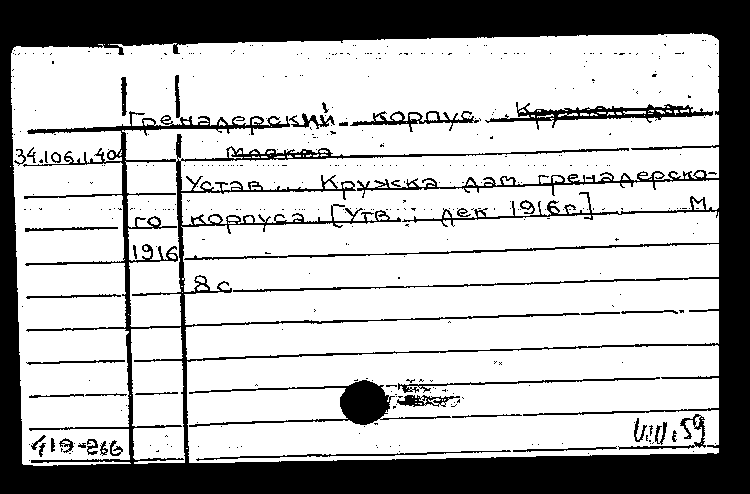 Гренадерский корпус. Кружок дам.
34.106.1.404 Москва
Устав... Кружка дам гренадерско-
го корпуса. [Утв.: дек 1916г.] М.,
1916.
8 с
419-266
VIII.59